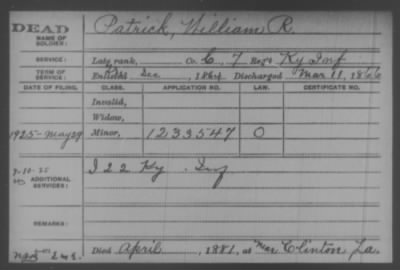 DEAD
NAME OF SOLDIER:
Patrick, William R.
SERVICE:
Late rank, Co. C, 7 Reg't Ky Inf
TERM OF SERVICE:
Enlisted Dec , 1864 Discharged Mar 11, 1866
DATE OF FILING. CLASS. APPLICATION NO. LAW. CERTIFICATE NO.
Invalid,
Widow,
1925-May 29 Minor, 1233547 O
ADDITIONAL SERVICES:
I 22 Ky. Inf
REMARKS:
Died April , 1881, at near Clinton La.